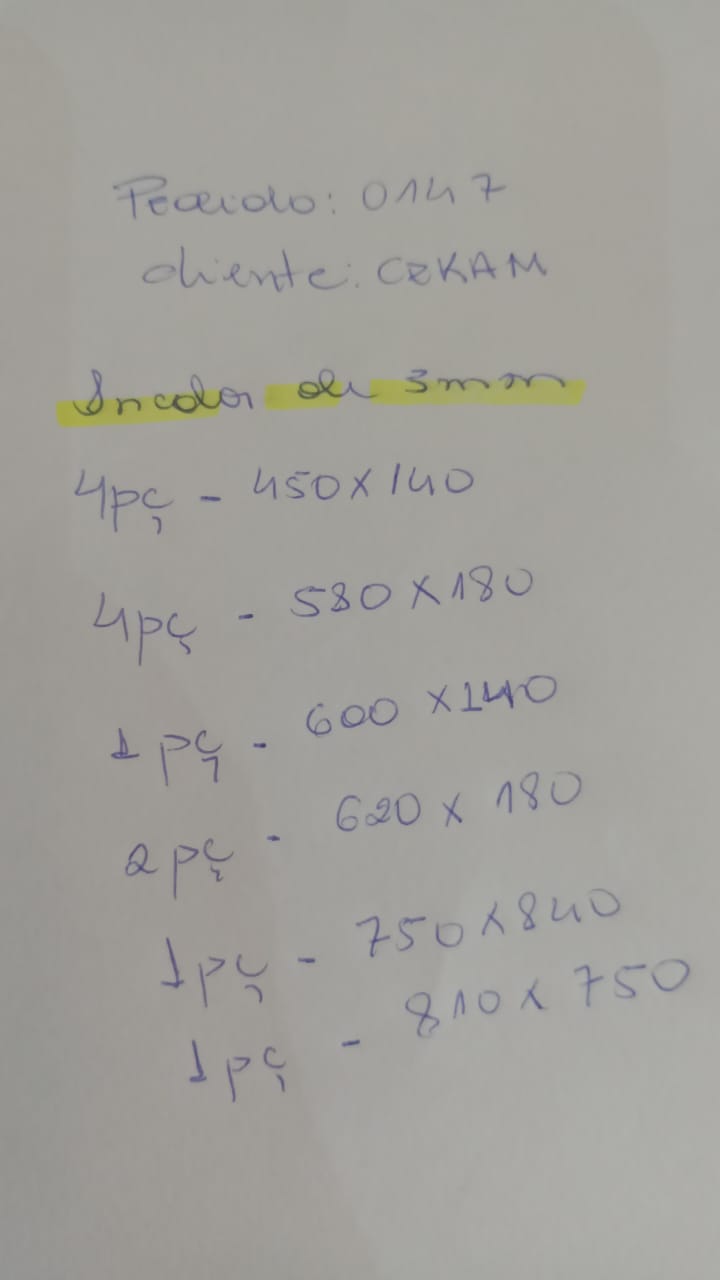 Pedido: 0147
cliente: CZKAM
Incolor de 3mm
4pç - 450X140
4pç - 580X180
1pç - 600X140
2pç - 620X180
1pç - 750X840
1pç - 810X750